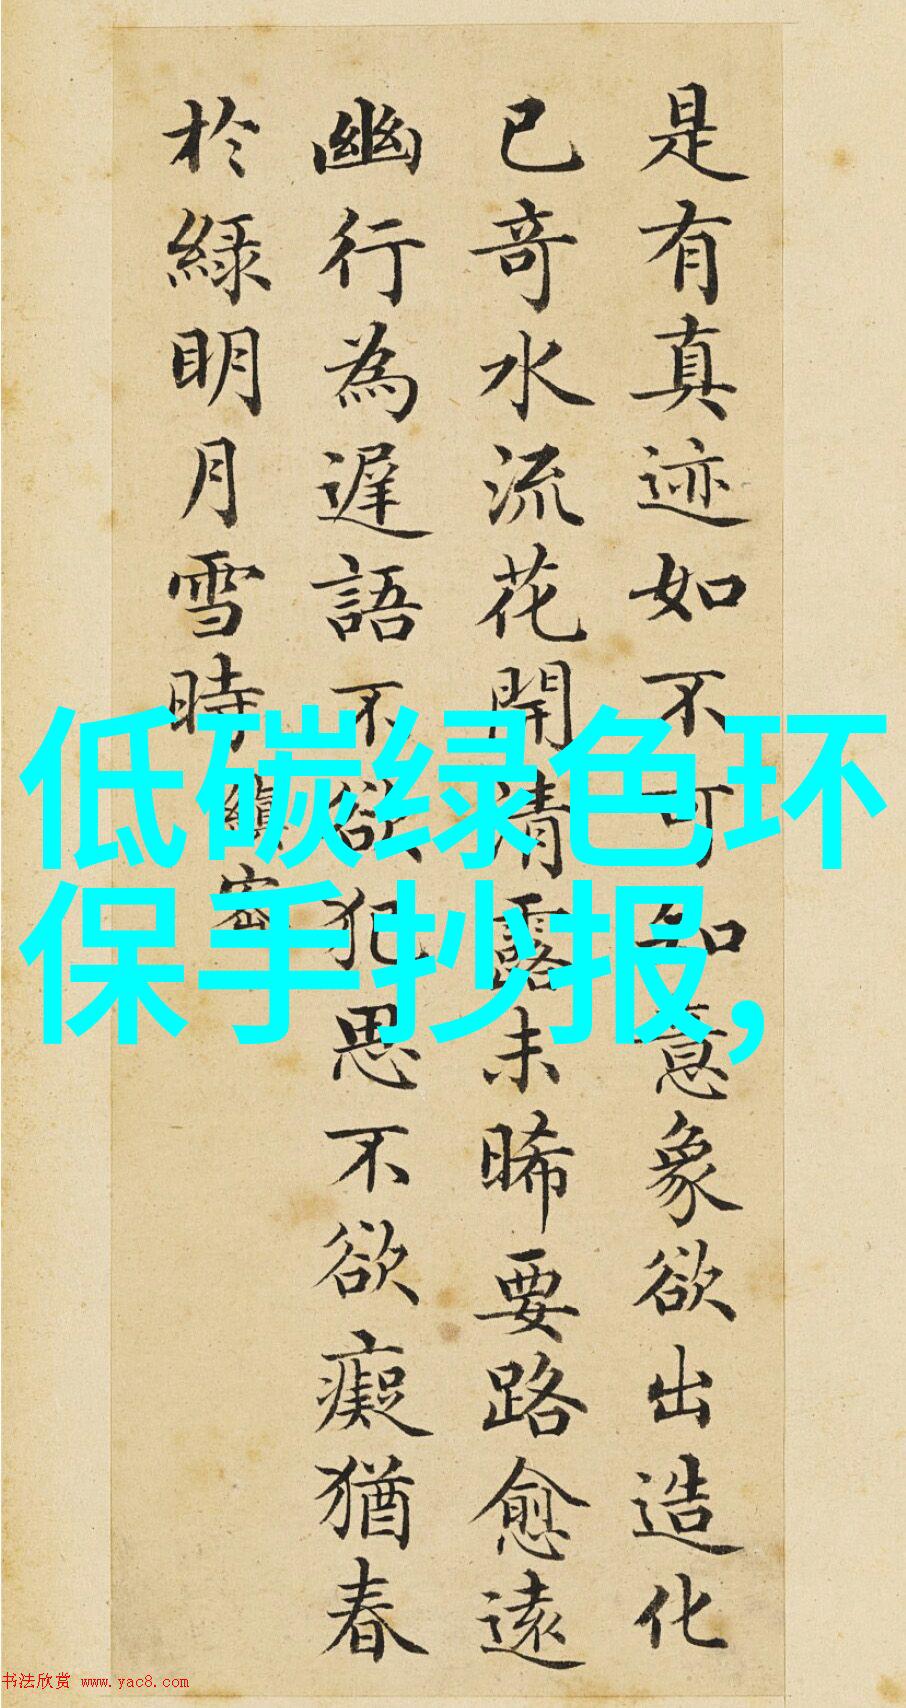 低碳绿色环
保手抄报,
是有真迹如不可知意象欲出造化
已奇水流花開清露未晞要路愈遠
幽行為遲語不欲犯思不欲癡猶春
於綠明月雪時
縝密
书法欣赏 www.yac8.com